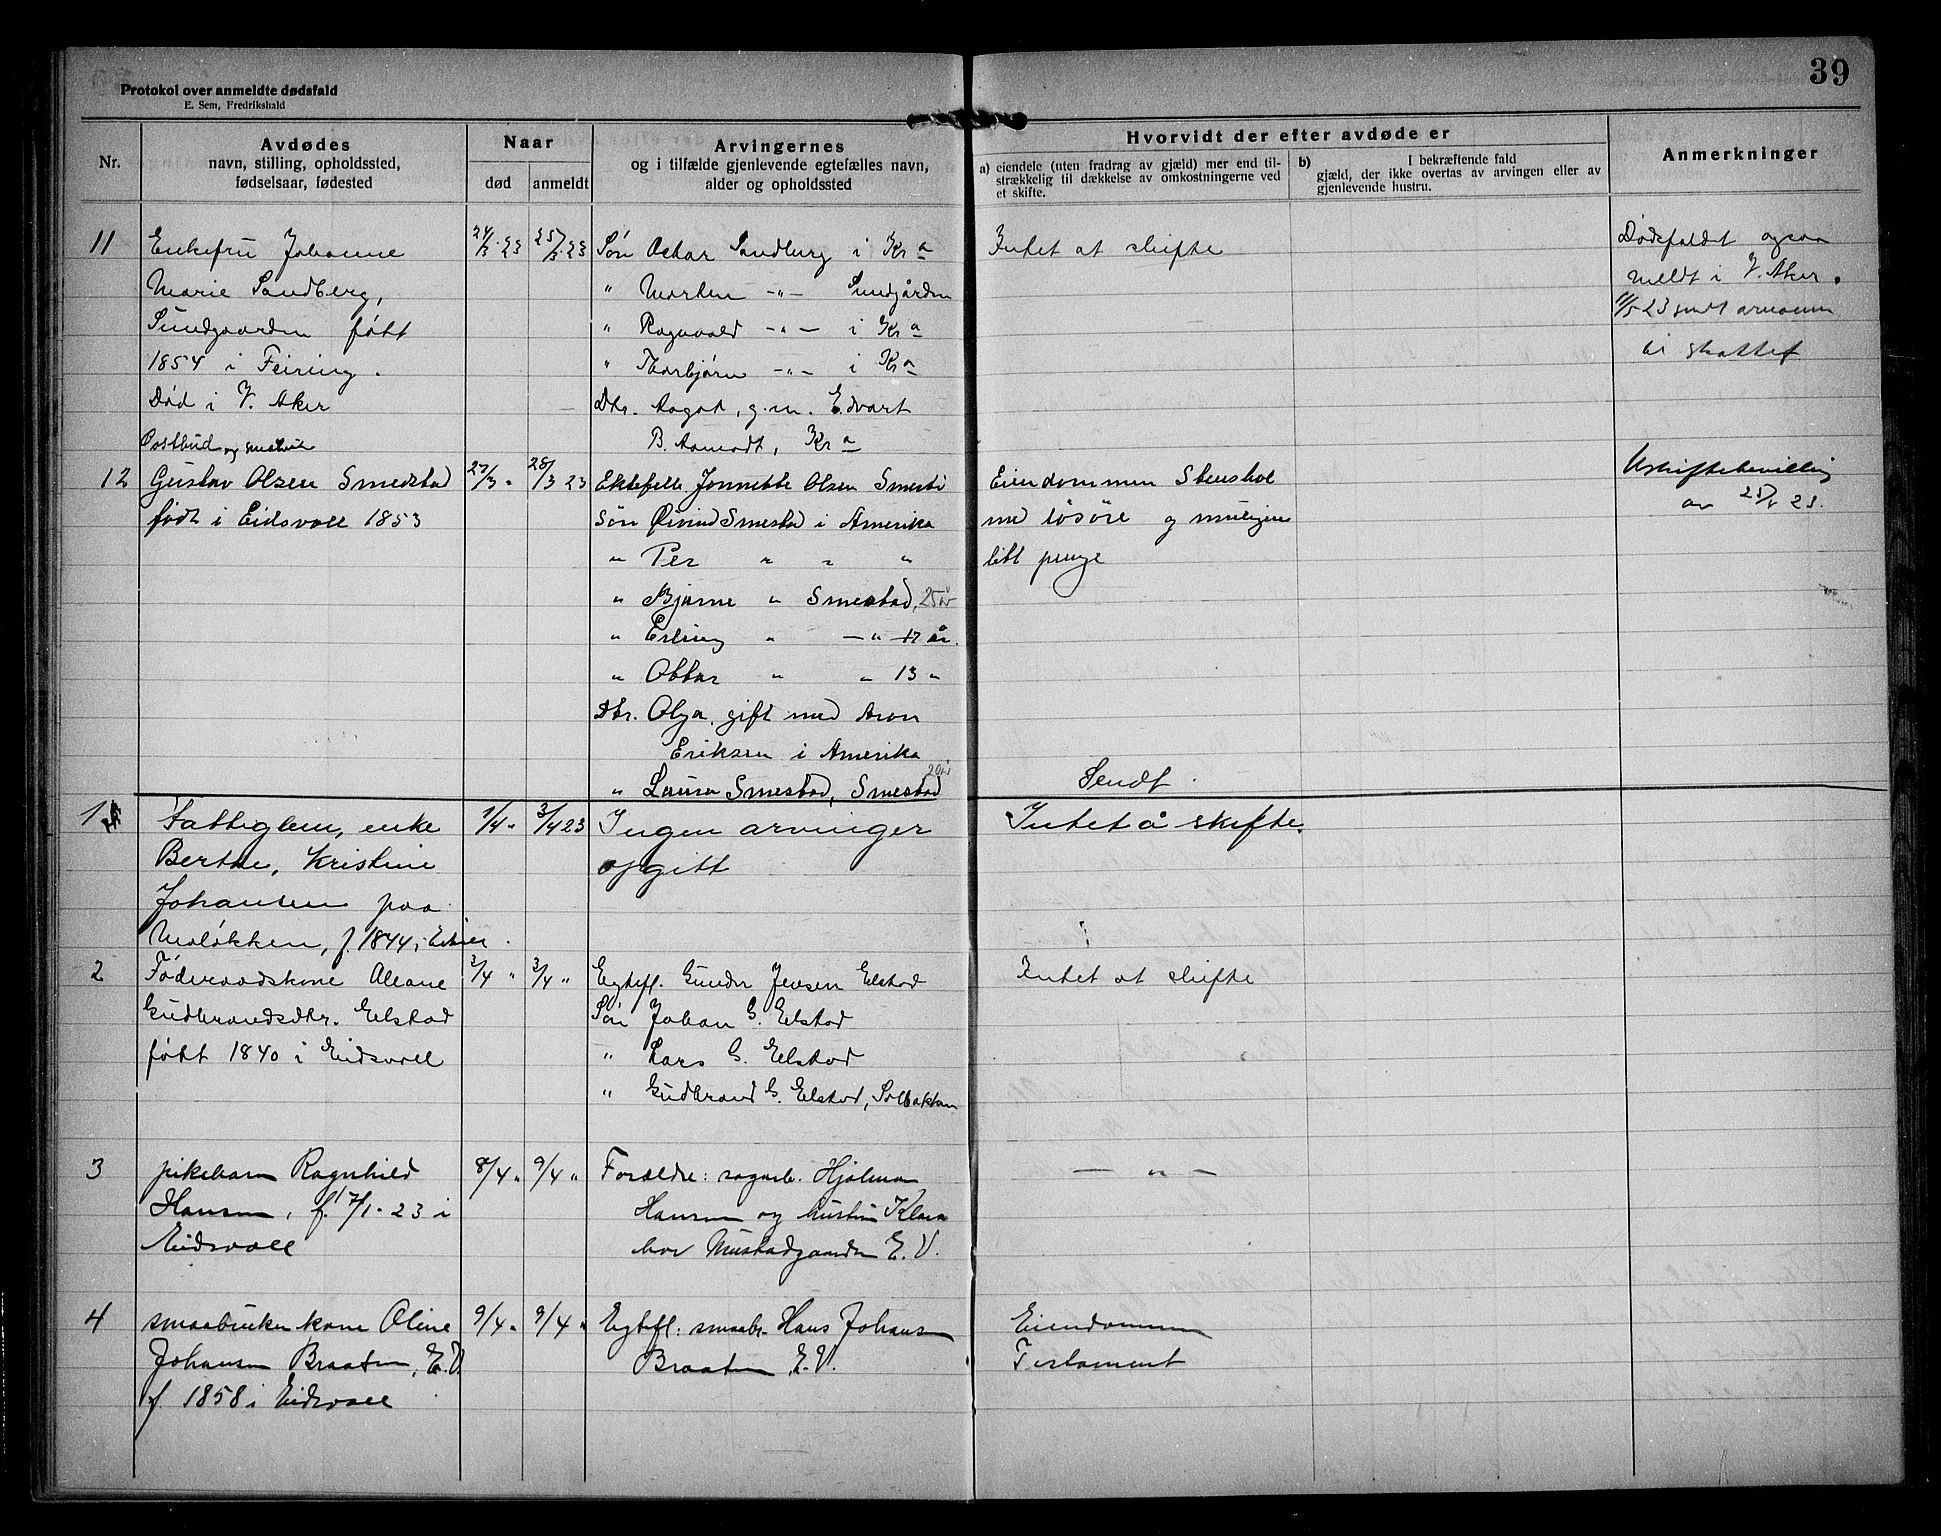 39
Protokol over anmeldte dødsfald
E. Sem, Fredrikshald
Nr.
Avdødes
navn, stilling, opholdssted,
fødselsaar, fødested
Naar
død
anmeldt
Arvingernes
og i tilfælde gjenlevende egtefælles navn,
alder og opholdssted
Hvorvidt der efter avdøde er
a) eiendele (uten fradrag av gjæld) mer end til-
strækkelig til dækkelse av omkostningerne ved
et skifte.
b) I bekræftende fald
gjæld, der ikke overtas av arvingen eller av
gjenlevende hustru.
Anmerkninger
11
Enkefru Johanne
Marie Sandberg,
Sundgaarden født
1854 i Feiring.
Død i V. Aker
24/3-23
25/3-23
Søn Oskar Sandberg i Kra
" Morten -"- Sundgården
" Ragnvald -"- i Kra
" Thorbjørn -"- i Kra
Dtr. Aagot, g.m. Edvart
B. Aamodt, Kra
Intet at skifte
Dødsfaldet ogsaa
meldt i V. Aker.
11/5 23 sendt
til skattef
Postbud og
12
Gustav Olsen Smedstad
født i Eidsvoll 1853
27/3 "
28/3 23
Ektefelle Jonnette Olsen Smest
Søn Øivind Smestad i Amerika
" Per " " "
" Bjarne " Smestad, 25 år
" Erling " -"- 17 år.
" Ottar " " 13 "
Dtr. Olga, gift med Aron
Eriksen i Amerika
20 år
" Laura Smestad, Smestad
Eiendommen Stenshol
med løsöre og muligens
litt penge
Sendt.
Uskiftebevilling
av 25/4 23.
1
Fattiglem, enke
Berthe, Kristine
Johansen paa
Moløkken, f. 1844 i
1/4 "
3/4 23
Ingen arvinger
opgitt
Intet å skifte.
2
Føderaadskone Aleane
Gudbrandsdtr. Elstad
født 1840 i Eidsvoll
3/4 "
3/4 "
Egtefl. Gunder Jensen Elstad
Søn Johan G. Elstad
" Lars G. Elstad
" Gudbrand G. Elstad, Solbakken
Intet at skifte
3
pikebarn Ragnhild
Hansen, f. 17/1-23 i
Eidsvoll
8/4 "
9/4 "
Forældre: sagarb. Hjalmar
Hansen og hustru Klara
bor Mustadgaarden E.V.
— " —
4
smaabruker kone Oline
Johansen Braaten, E.V.
f. 1858 i Eidsvoll
9/4 "
9/4 "
Egtefl: smaabr. Hans Johansen
Braaten E.V.
Eiendommen
Testament